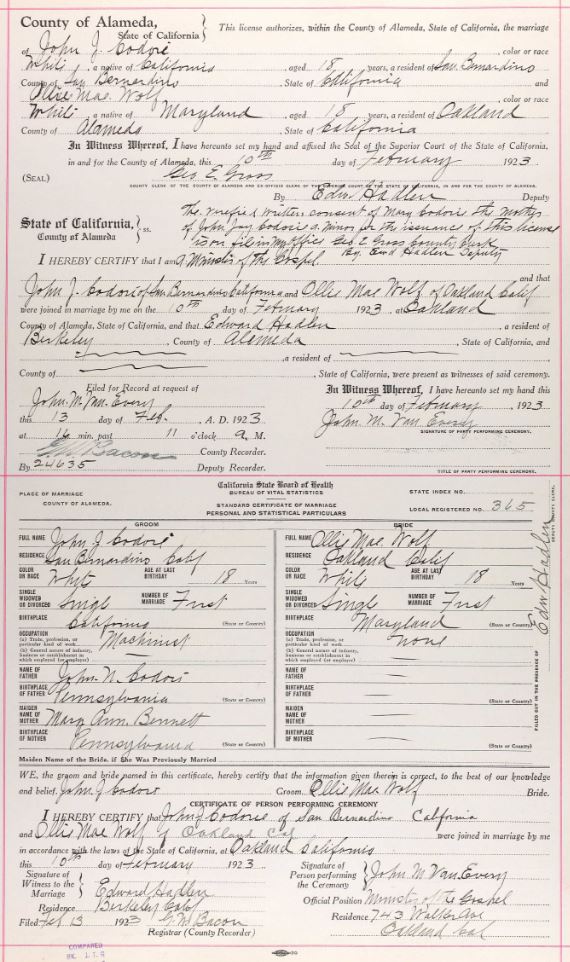 County of Alameda,
State of California
This license authorizes, within the County of Alameda, State of California, the marriage
of John J. Codori , color or race
White , a native of California , aged 18 years, a resident of San Bernardino
County of San Bernardino , State of California and
Ollie Mae Wolf , color or race
White , a native of Maryland , aged 18 years, a resident of Oakland
County of Alameda , State of California
In Witness Whereof, I have hereunto set my hand and affixed the Seal of the Superior Court of the State of California,
in and for the County of Alameda, this 10th day of February 1923.
(SEAL) Geo E. Gross
COUNTY CLERK OF THE COUNTY OF ALAMEDA AND EX-OFFICIO CLERK OF THE SUPERIOR COURT OF THE STATE OF CALIFORNIA, IN AND FOR THE COUNTY OF ALAMEDA.
By Edw. Hadlen Deputy
State of California, County of Alameda ss.
The verified written consent of Mary Codori the mother
of John Jay Codori a minor for the issuance of this license
is on file in my office Geo E Gross County Clerk
By Edw Hadlen Deputy
I HEREBY CERTIFY that I am a Minister of the Gospel
and that
John J. Codori of San Bernardino California and Ollie Mae Wolf of Oakland Calif
were joined in marriage by me on the 10th day of February 1923 at Oakland
County of Alameda, State of California, and that Edward Hadlen , a resident of
Berkeley , County of Alameda , State of California, and
, a resident of
County of , State of California, were present as witnesses of said ceremony.
Filed for Record at request of
John. M. Van. Every
this 13 day of Feb. , A. D. 1923
at 16 min. past 11 o'clock A. M.
G. W. Bacon County Recorder.
By 24635 Deputy Recorder.
In Witness Whereof, I have hereunto set my hand this
10th day of February , 1923.
John M. Van Every
SIGNATURE OF PARTY PERFORMING CEREMONY.
TITLE OF PARTY PERFORMING CEREMONY.
California State Board of Health
BUREAU OF VITAL STATISTICS
STANDARD CERTIFICATE OF MARRIAGE
PERSONAL AND STATISTICAL PARTICULARS
PLACE OF MARRIAGE
COUNTY OF ALAMEDA.
STATE INDEX NO.
LOCAL REGISTERED NO. 365
GROOM
FULL NAME John J Codori
RESIDENCE San Bernardino Calif
COLOR OR RACE White AGE AT LAST BIRTHDAY 18 Years
SINGLE WIDOWED OR DIVORCED Single NUMBER OF MARRIAGE First
BIRTHPLACE California (State or Country)
OCCUPATION
(a) Trade, profession, or particular kind of work Machinist
(b) General nature of industry, business or establishment in which employed (or employer)
NAME OF FATHER John N. Codori
BIRTHPLACE OF FATHER Pennsylvania (State or Country)
MAIDEN NAME OF MOTHER Mary Ann. Bennett
BIRTHPLACE OF MOTHER Pennsylvania (State or Country)
BRIDE
FULL NAME Ollie Mae Wolf
RESIDENCE Oakland Calif
COLOR OR RACE White AGE AT LAST BIRTHDAY 18 Years
SINGLE WIDOWED OR DIVORCED Single NUMBER OF MARRIAGE First
BIRTHPLACE Maryland (State or Country)
OCCUPATION
(a) Trade, profession, or particular kind of work none
(b) General nature of industry, business or establishment in which employed (or employer)
NAME OF FATHER
BIRTHPLACE OF FATHER (State or Country)
MAIDEN NAME OF MOTHER
BIRTHPLACE OF MOTHER (State or Country)
FILLED OUT IN THE PRESENCE OF Edw Hadlen DEPUTY COUNTY CLERK.
Maiden Name of the Bride, if She was Previously Married
WE, the groom and bride named in this certificate, hereby certify that the information given therein is correct, to the best of our knowledge
and belief. John J Codori Groom. Ollie Mae Wolf Bride.
CERTIFICATE OF PERSON PERFORMING CEREMONY
I HEREBY CERTIFY that John J Codori of San Bernardino California
and Ollie Mae Wolf of Oakland Cal were joined in marriage by me
in accordance with the laws of the State of California, at Oakland California
this 10th day of February 1923.
Signature of Witness to the Marriage Edward Hadlen
Residence Berkeley Calif
Filed Feb 13 1923 G. W. Bacon
Registrar (County Recorder)
Signature of Person performing the Ceremony John M Van Every
Official Position Minister of the Gospel
Residence 743 Walker Ave
Oakland Cal
COMPARED